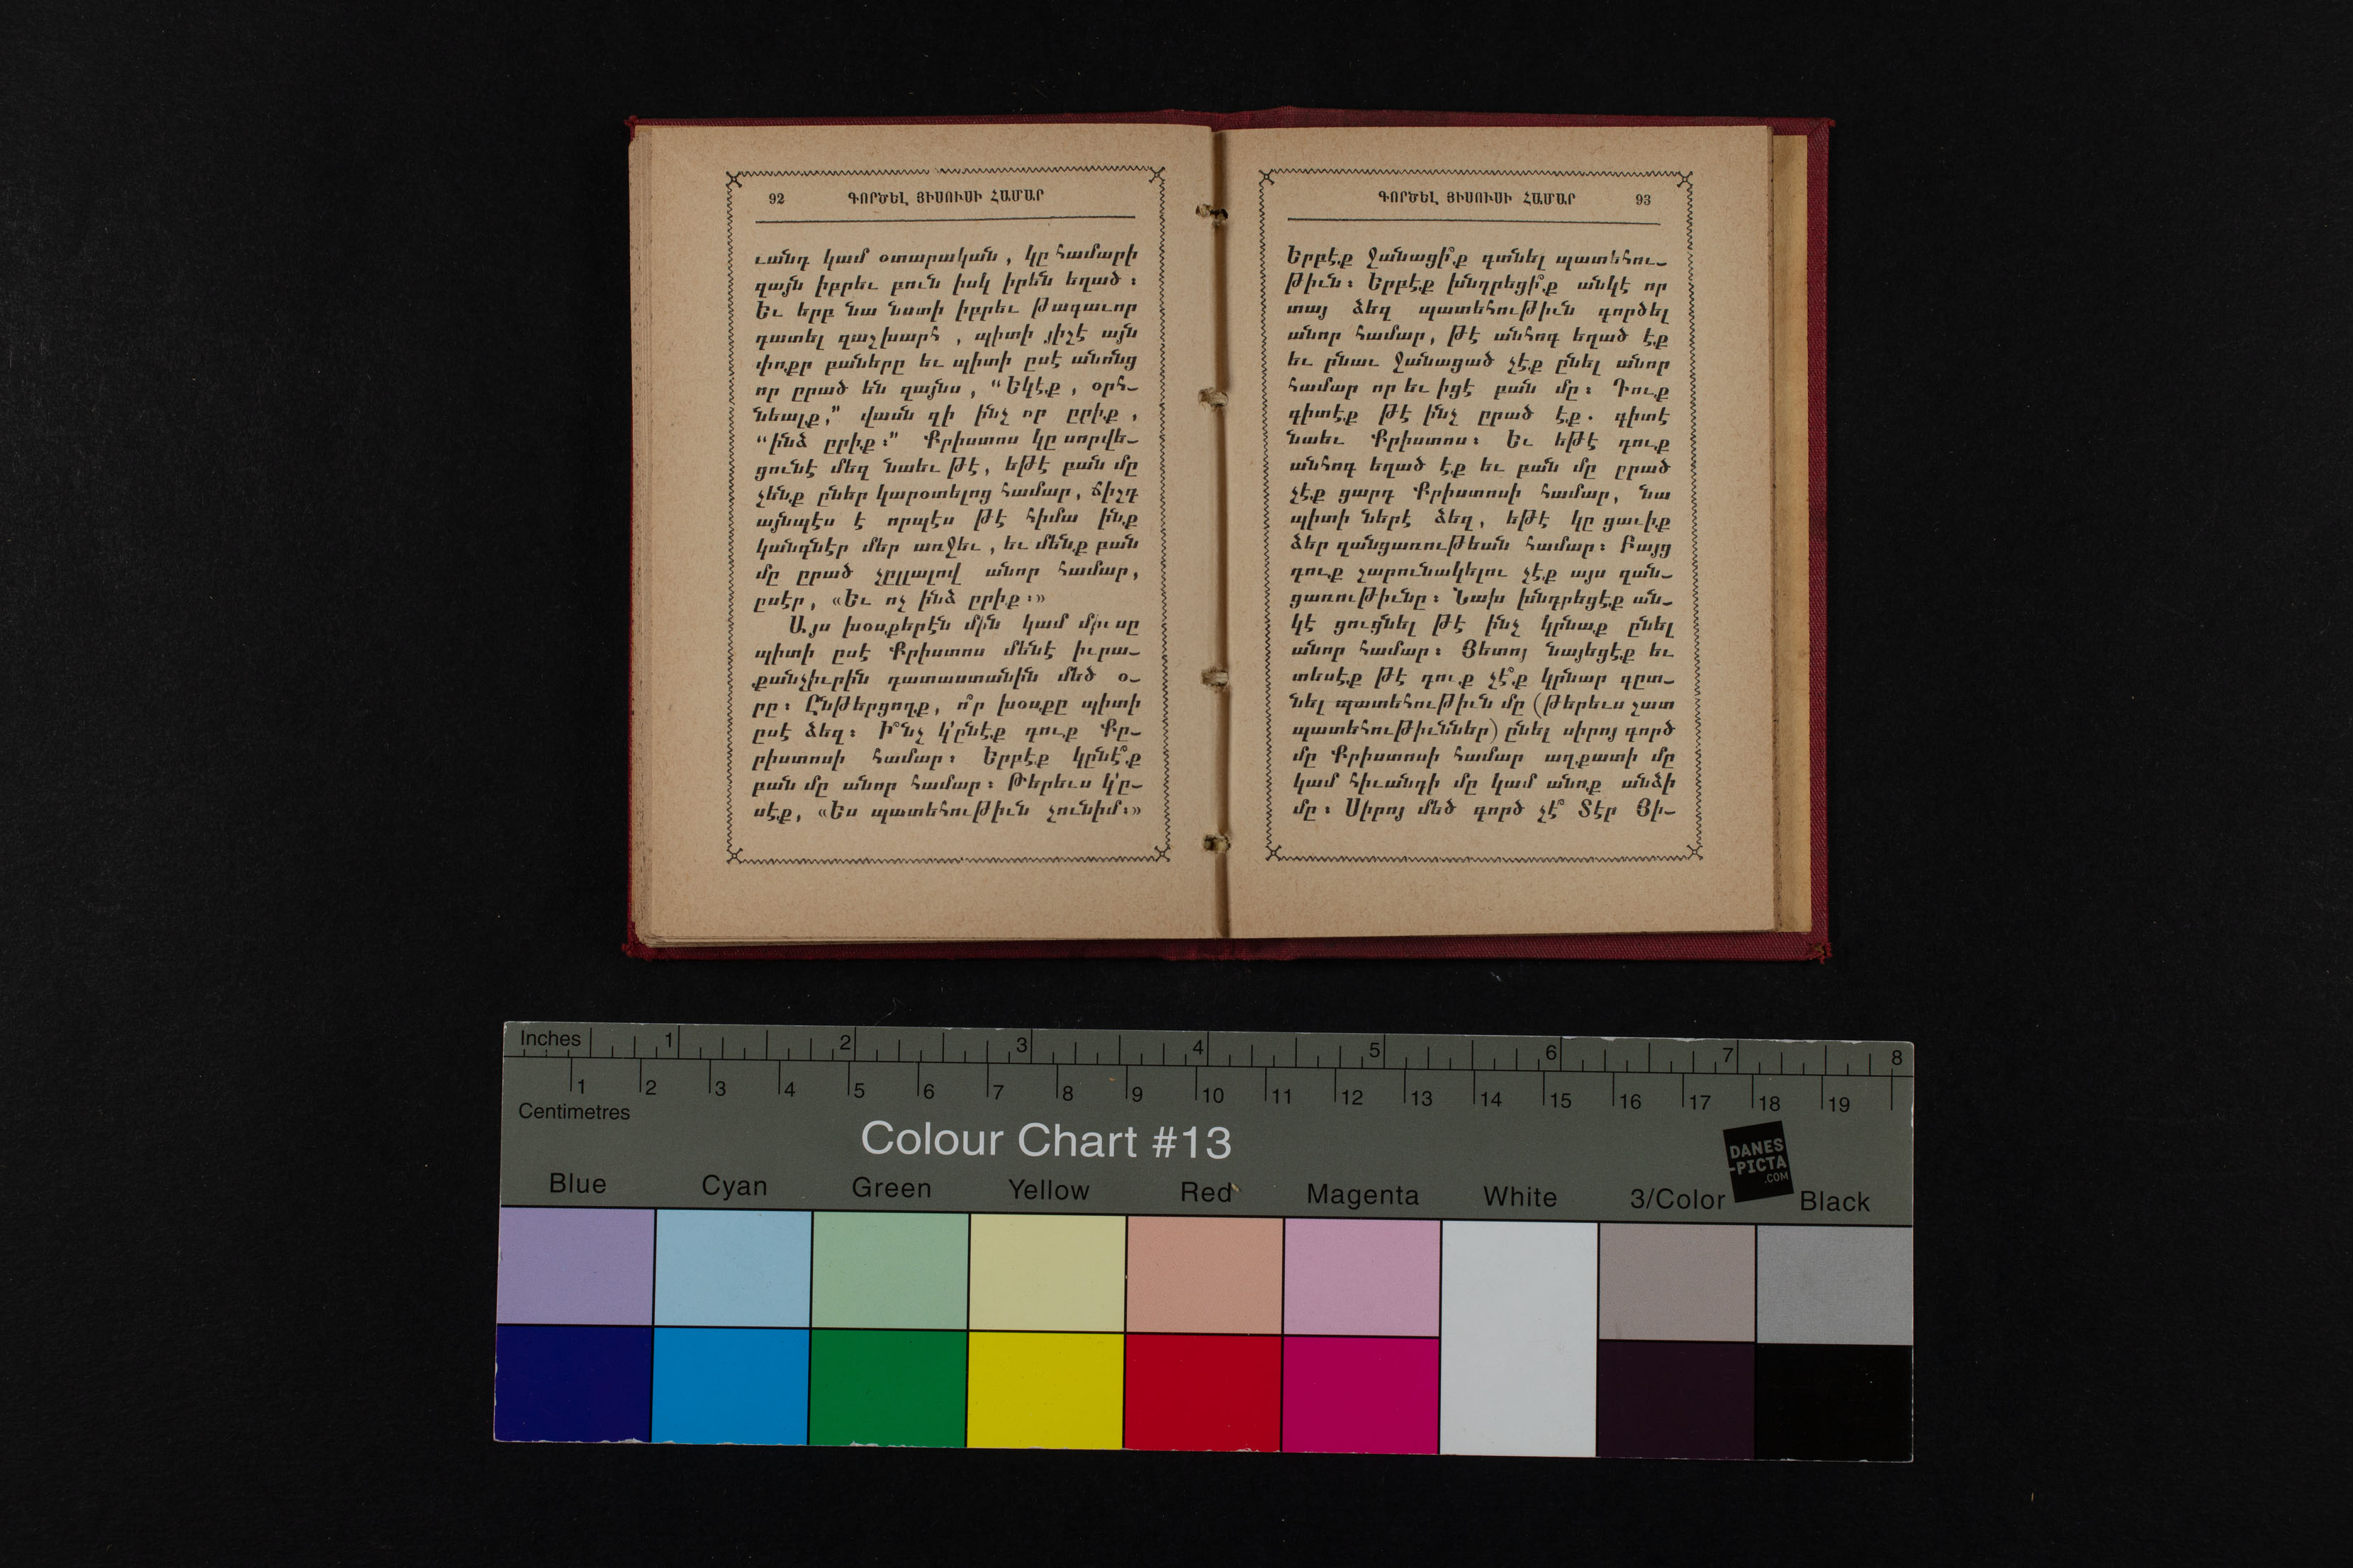 92 ԳՈՐԾԵԼ ՅԻՍՈՒՍԻ ՀԱՄԱՐ
ւանդ կամ օտարական, կը համարի
զայն իբրեւ բուն իսկ իրեն եղած։
Եւ երբ նա նստի իբրեւ թագաւոր
դատել զաշխարհ, պիտի յիշէ այն
փոքր բաները եւ պիտի ըսէ անոնց
որ ըրած են զայնս, “Եկէք, օրհ-
նեալք,” վասն զի ինչ որ ըրիք,
“ինձ ըրիք։” Քրիստոս կը սորվե-
ցունէ մեզ նաեւ թէ, եթէ բան մը
չենք ըներ կարօտելոց համար, ճիշդ
այնպէս է որպէս թէ հիմա ինք
կանգնէր մեր առջեւ, եւ մենք բան
մը ըրած չըլլալով անոր համար,
ըսէր, «Եւ ոչ ինձ ըրիք։»
Այս խօսքերէն մին կամ միւսը
պիտի ըսէ Քրիստոս մենէ իւրա-
քանչիւրին դատաստանին մեծ օ-
րը։ Ընթերցողք, ո՞ր խօսքը պիտի
ըսէ ձեզ։ Ի՞նչ կ՚ընէք դուք Քը-
րիստոսի համար։ Երբէք կընէ՞ք
բան մը անոր համար։ Թերեւս կ՚ը-
սէք, «Ես պատեհութիւն չունիմ։»
ԳՈՐԾԵԼ ՅԻՍՈՒՍԻ ՀԱՄԱՐ 93
Երբէք ջանացի՞ք գտնել պատեհու-
թիւն։ Երբէք խնդրեցի՞ք անկէ որ
տայ ձեզ պատեհութիւն գործել
անոր համար, թէ անհոգ եղած էք
եւ բնաւ ջանացած չէք ընել անոր
համար որ եւ իցէ բան մը։ Դուք
գիտէք թէ ինչ ըրած էք. գիտէ
նաեւ Քրիստոս։ Եւ եթէ դուք
անհոգ եղած էք եւ բան մը ըրած
չէք ցարդ Քրիստոսի համար, նա
պիտի ներէ ձեզ, եթէ կը ցաւիք
ձեր զանցառութեան համար։ Բայց
դուք շարունակելու չէք այս զան-
ցառութիւնը։ Նախ խնդրեցէք ան-
կէ ցուցնել թէ ինչ կրնաք ընել
անոր համար։ Յետոյ նայեցէք եւ
տեսէք թէ դուք չէ՞ք կրնար գըտ-
նել պատեհութիւն մը (թերեւս շատ
պատեհութիւններ) ընել սիրոյ գործ
մը Քրիստոսի համար աղքատի մը
կամ հիւանդի մը կամ անոք անձի
մը։ Սիրոյ մեծ գործ չէ՞ Տէր Յի-
Inches 1 2 3 4 5 6 7 8
1 2 3 4 5 6 7 8 9 10 11 12 13 14 15 16 17 18 19
Centimetres
Colour Chart #13
DANES
-PICTA
.COM
Blue Cyan Green Yellow Red Magenta White 3/Color Black